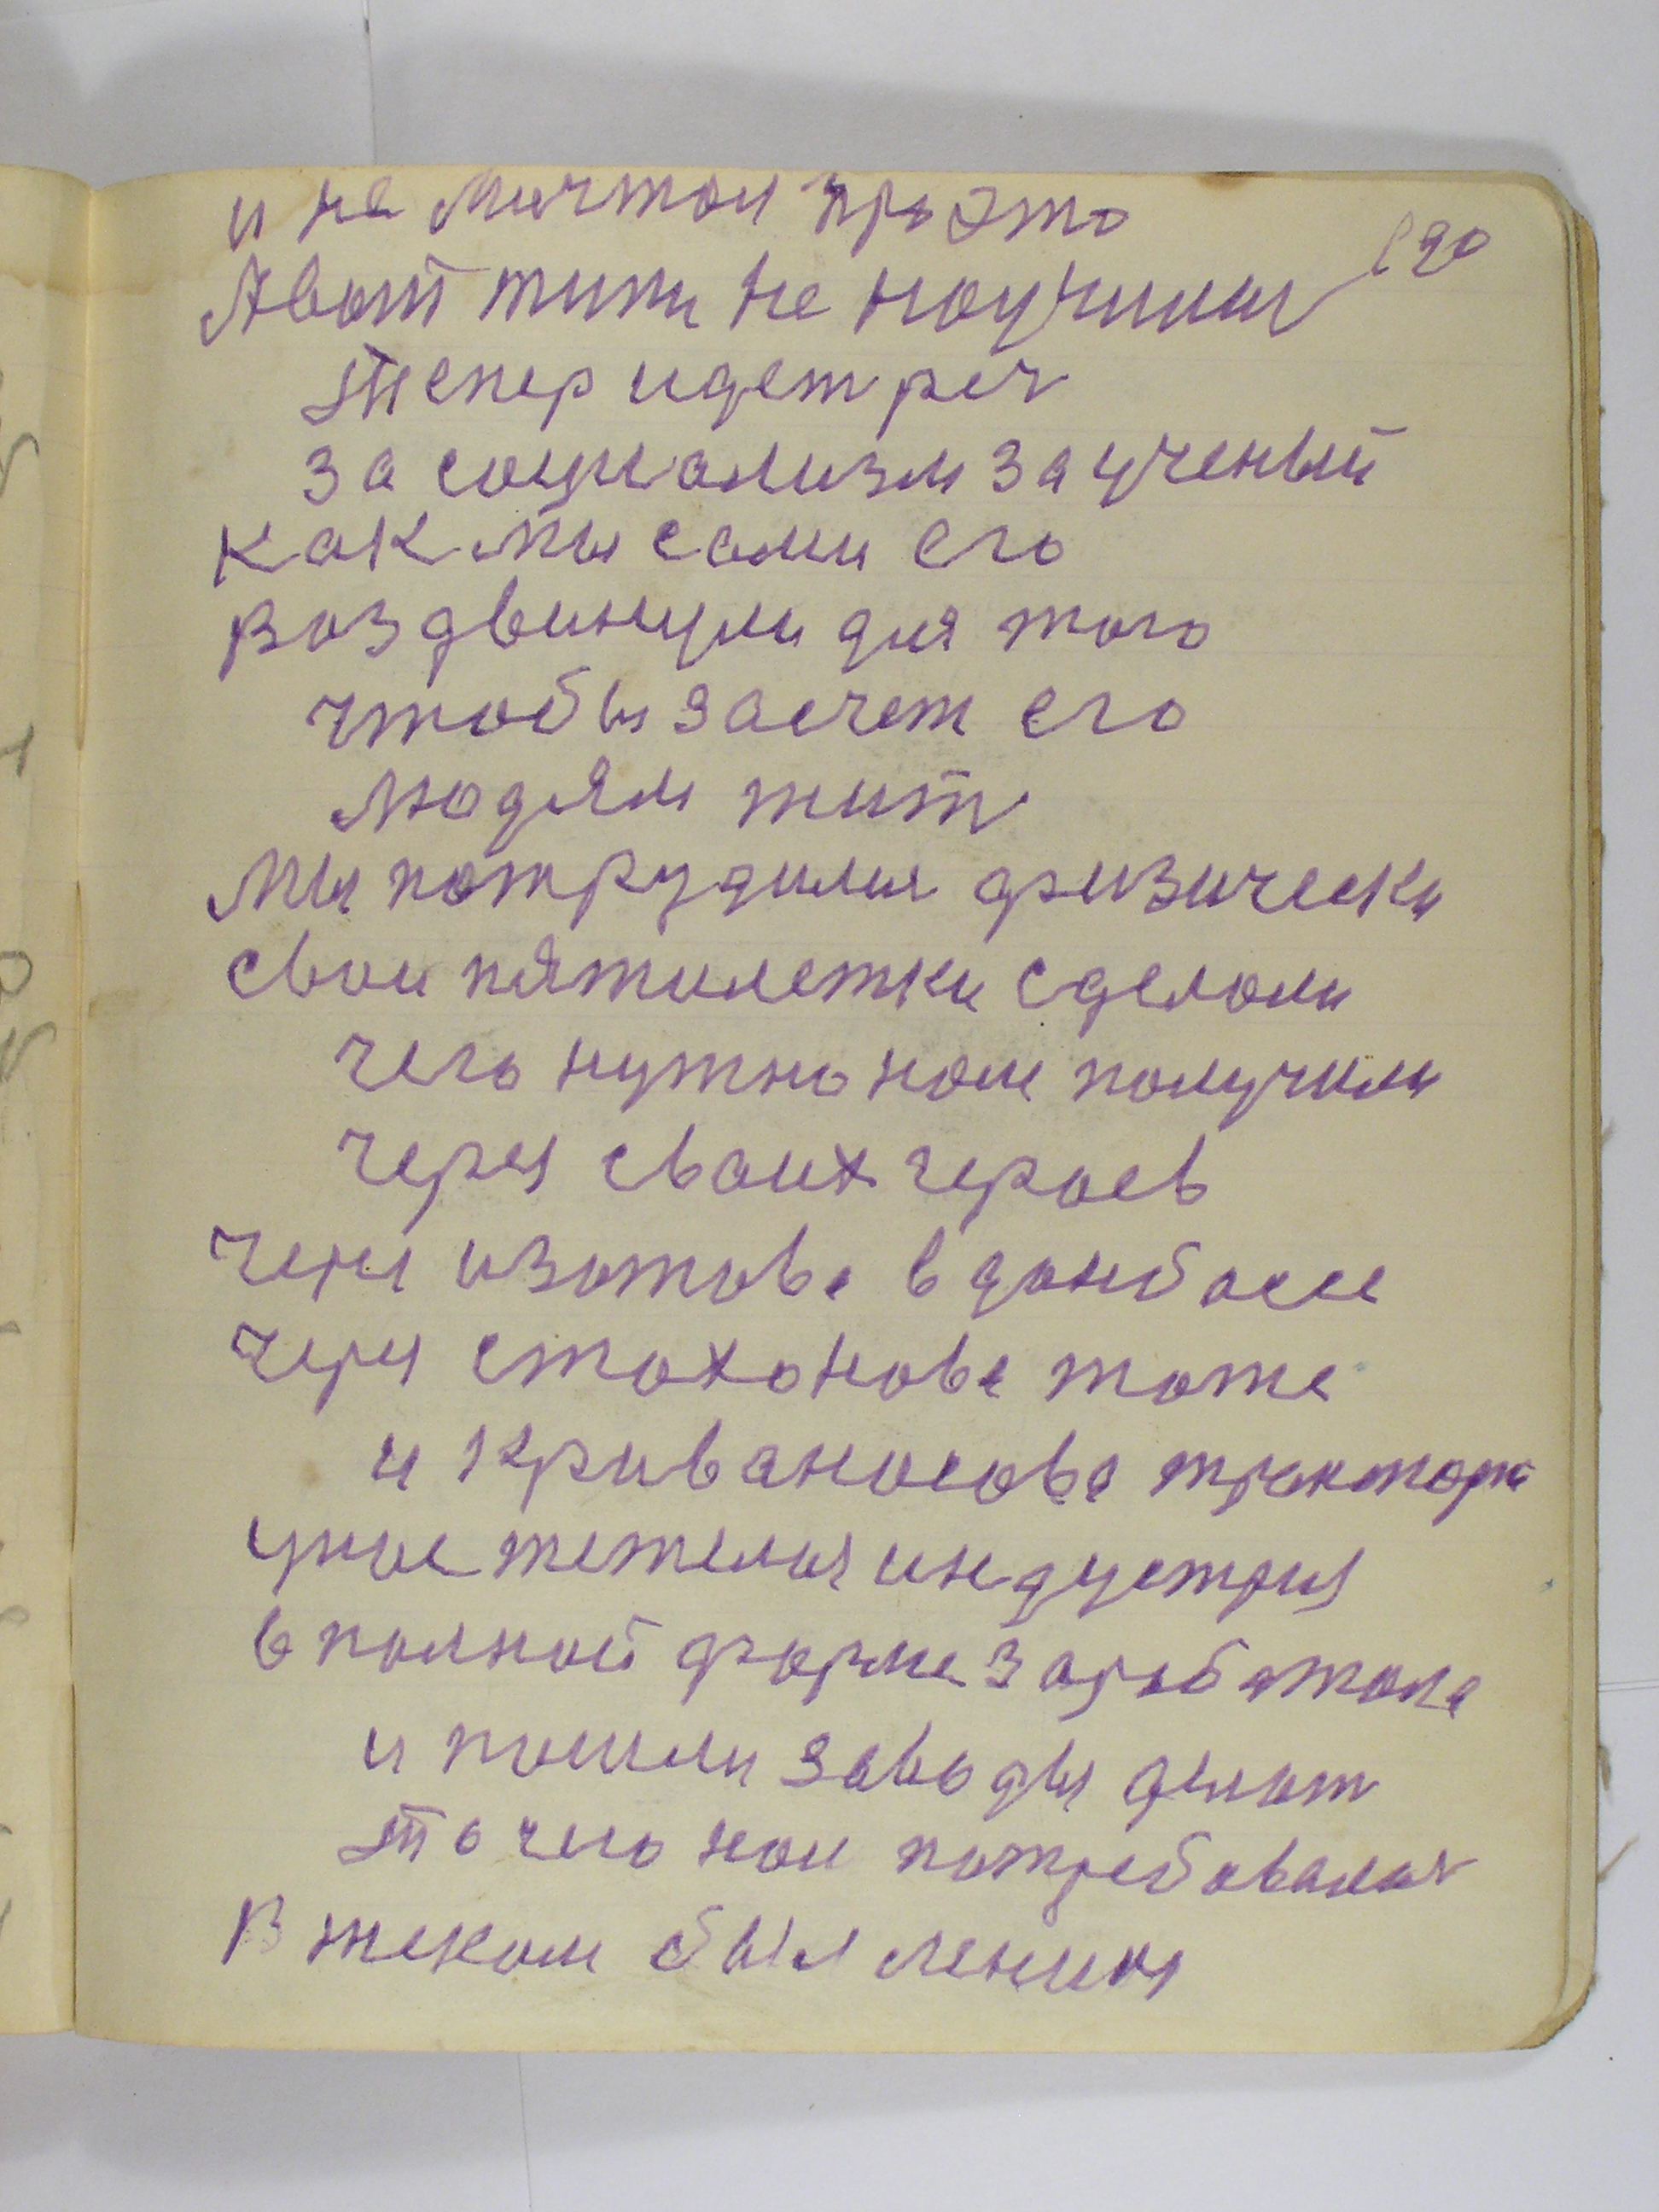 и не мичтои про это
190
А вот жити не научилис
Тепер идет реч
за социализм за ученый
как мы сами его
воздвинули для того
чтобы засчет его
людям жит
Мы потрудилис физически
свои пятилетки сделоли
чего нужно нам получили
через своих героев
через изотова в донбассе
через стохонова тоже
и Кривоносова тракторн
ужос тежелая индустрия
в полной форме заработола
и пошли заводы делат
то чего нам потребовалос
В таком был ленин